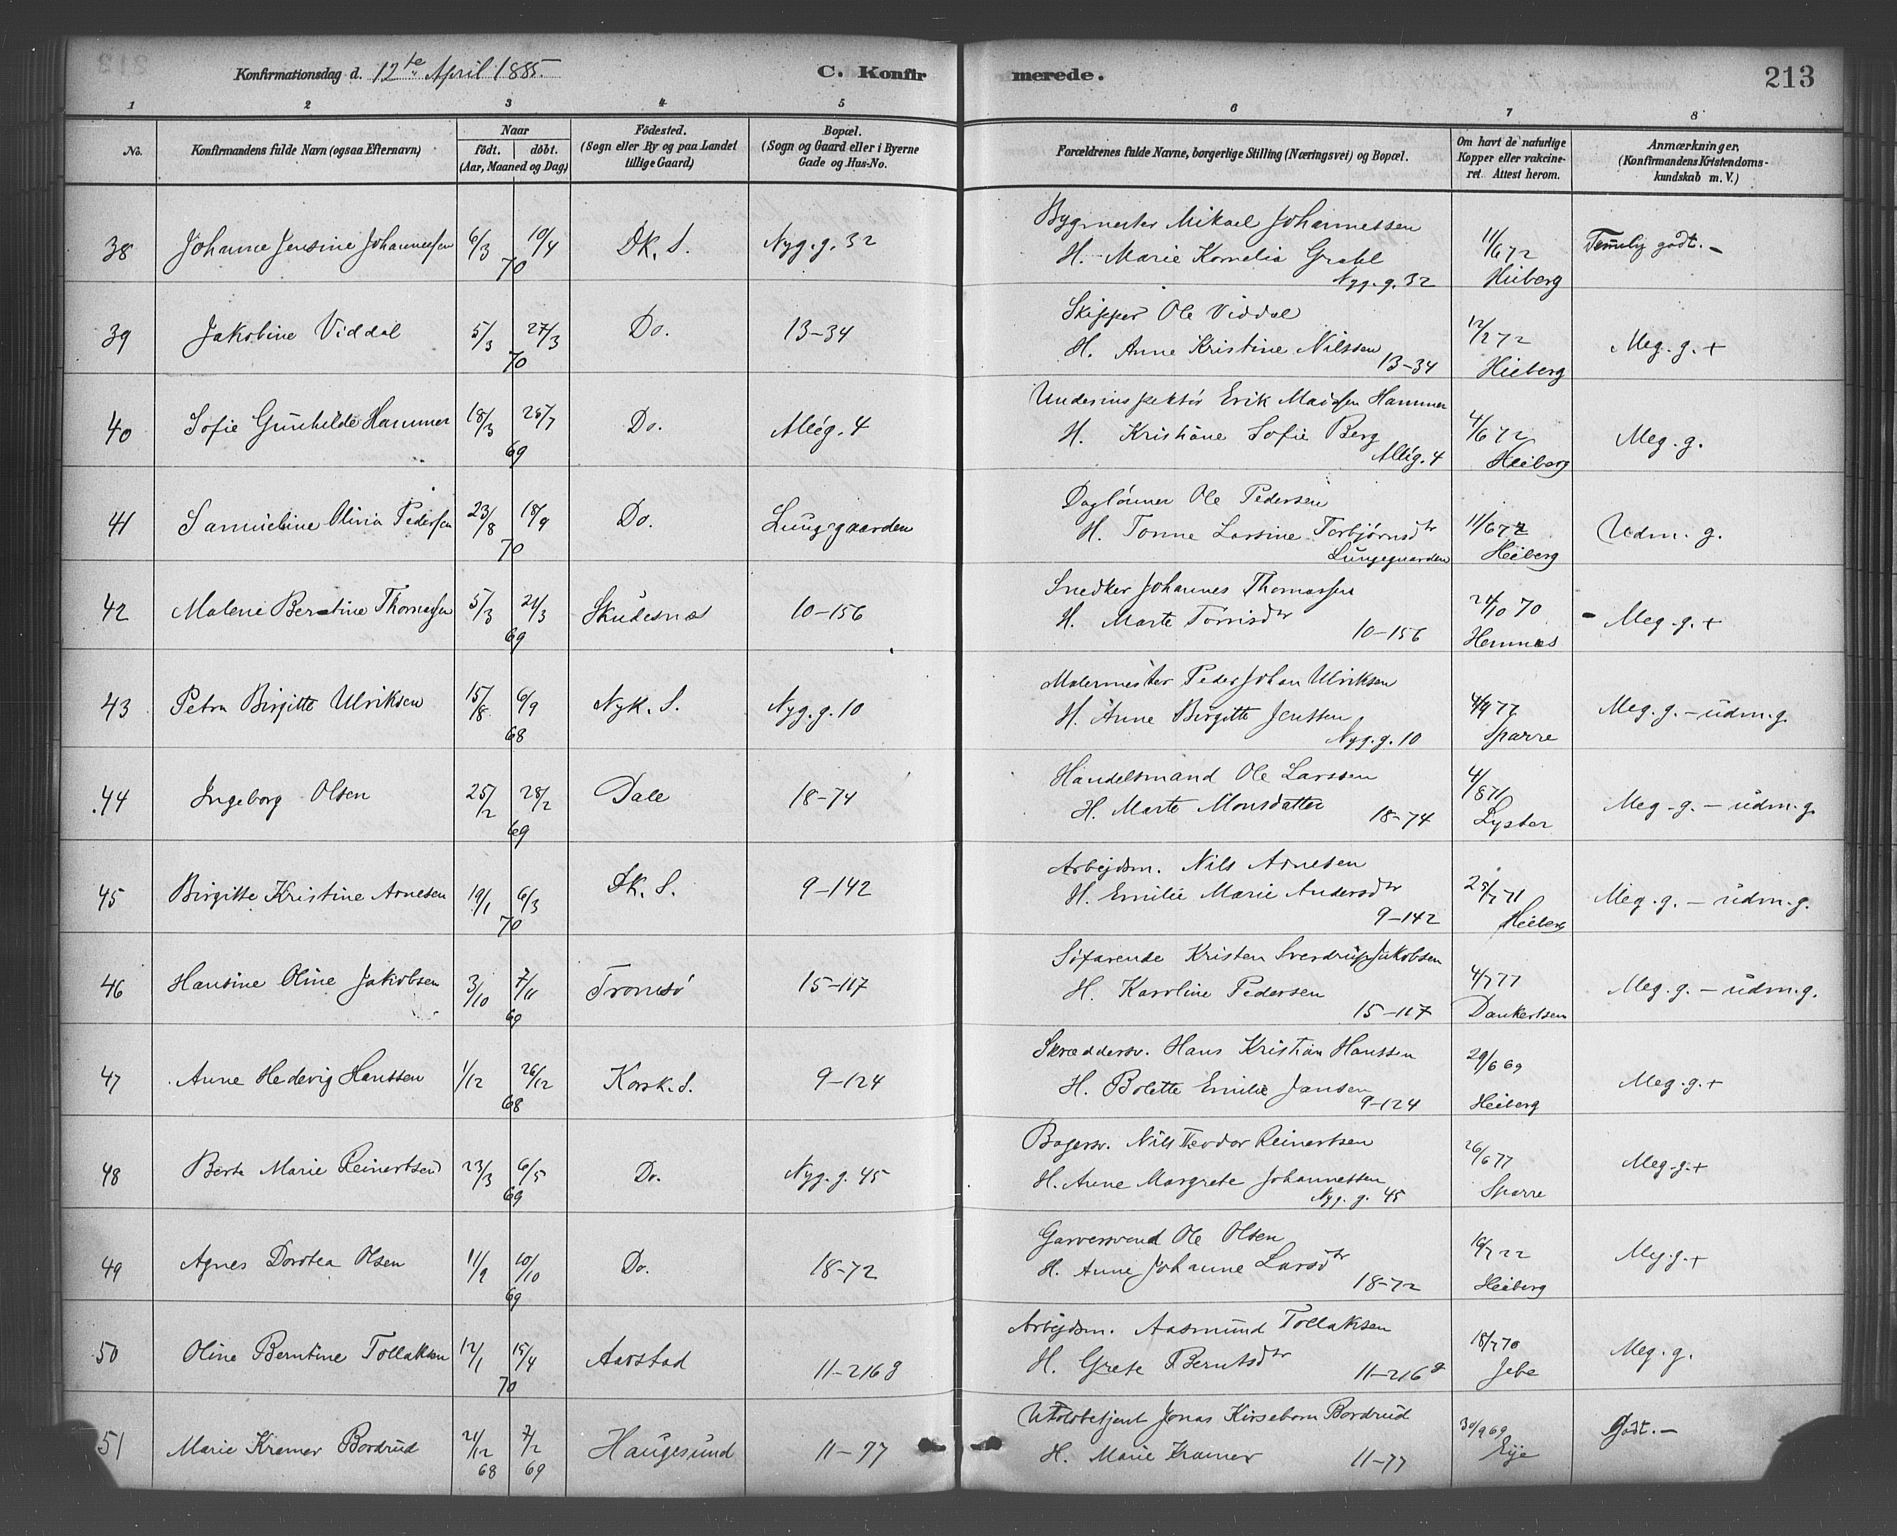 Konfirmationsdag d. 12te April 1885. C. Konfirmerede. 213
1 2 3 4 5 6 7 8
No. Konfirmandens fulde Navn (ogsaa Efternavn) Naar født. døbt. (Aar, Maaned og Dag) Fødested. (Sogn eller By og paa Landet tillige Gaard) Bopæl. (Sogn og Gaard eller i Byerne Gade og Hus-No. Forældrenes fulde Navne, borgerlige Stilling (Næringsvei) og Bopæl. Om havt de naturlige Kopper eller vakcineret. Attest herom. Anmærkninger. (Konfirmandens Kristendomskundskab m. V.)
38 Johanne Jensine Johannessen 6/3 10/4 70 Dk. S. Nyg. g. 32 Bygmester Mikael Johannessen
H. Marie Kornelia Grahl Nyg. g. 32 11/6 72 Heiberg Temmelig godt. -
39 Jakobine Viddal 5/3 27/3 70 Do. 13-34 Skipper Ole Viddal
H. Anne Kristine Nilssen 13-34 12/2 72 Heiberg Meg. g. +
40 Sofie Gunhilde Hammer 18/3 26/7 69 Do. Alleg. 4 Underinspektør Erik Hammer
H. Kristiane Sofie Berg Alleg. 4 4/6 72 Heiberg Meg. g.
41 Samueline Olivia Pedersen 23/8 18/9 70 Do. Lungegaarden Daglønner Ole Pedersen
H. Tonne Larsine Torbjørnsdtr Lungegaarden 11/6 72 Heiberg Udm. g.
42 Malene Berntine Thomassen 5/3 21/3 69 Skudesnæs 10-156 Snedker Johannes Thomassen
H. Marte Torrisdtr 10-156 24/10 70 Hemnæs Meg. g. +
43 Petra Birgitte Ulriksen 15/8 6/9 68 Nyk. S. Nyg. g. 10 Malermester Peder Johan Ulriksen
H. Anne Birgitte Jenssen Nyg. g. 10 4/9 77 Sparre Meg. g. - udm. g.
44 Ingeborg Olsen 25/2 28/2 69 Dale 18-74 Handelsmand Ole Larssen
H. Marte Monsdatter 18-74 4/8 71 Lyster Meg. g. - udm. g.
45 Birgitte Kristine Arnesen 19/1 6/3 70 Dk. S. 9-142 Arbejdsm. Nils Arnesen
H. Emilie Marie Andersdtr 9-142 25/7 71 Heiberg Meg. g. - udm. g.
46 Hansine Oline Jakobsen 3/10 7/11 69 Tromsø 15-117 Søfarende Kristen Sverdrup Jakobsen
H. Karoline Pedersen 15-117 4/7 77 Dankertsen Meg. g. - udm. g.
47 Anne Hedevig Hanssen 1/12 26/12 68 Korsk. S. 9-124 Skræddersv. Hans Kristian Hanssen
H. Bolette Emilie Jansen 9-124 29/6 69 Heiberg Meg. g. +
48 Berte Marie Reinertsen 23/3 6/5 69 Do. Nyg. g. 45 Bagersv. Nils Teodor Reinertsen
H. Anne Margrete Johannessen Nyg. g. 45 26/6 77 Sparre Meg. g. +
49 Agnes Dorotea Olsen 11/9 10/10 69 Do. 18-72 Garversvend Ole Olsen
H. Anne Johanne Larsdtr 18-72 Heiberg Meg. g. +
50 Oline Berntine Tollaksen 12/1 15/4 70 Aarstad 11-216 g Arbejdsm. Aasmund Tollaksen
H. Grete Berntsdtr 11-216 g 18/7 70 Jebe Meg. g.
51 Marie Kremer Bordrud 21/12 68 7/2 69 Haugesund 11-77 Toldbetjent Jonas Kirseborn Bordrud
H. Marie Kramer 11-77 30/9 69 Eije Godt. -